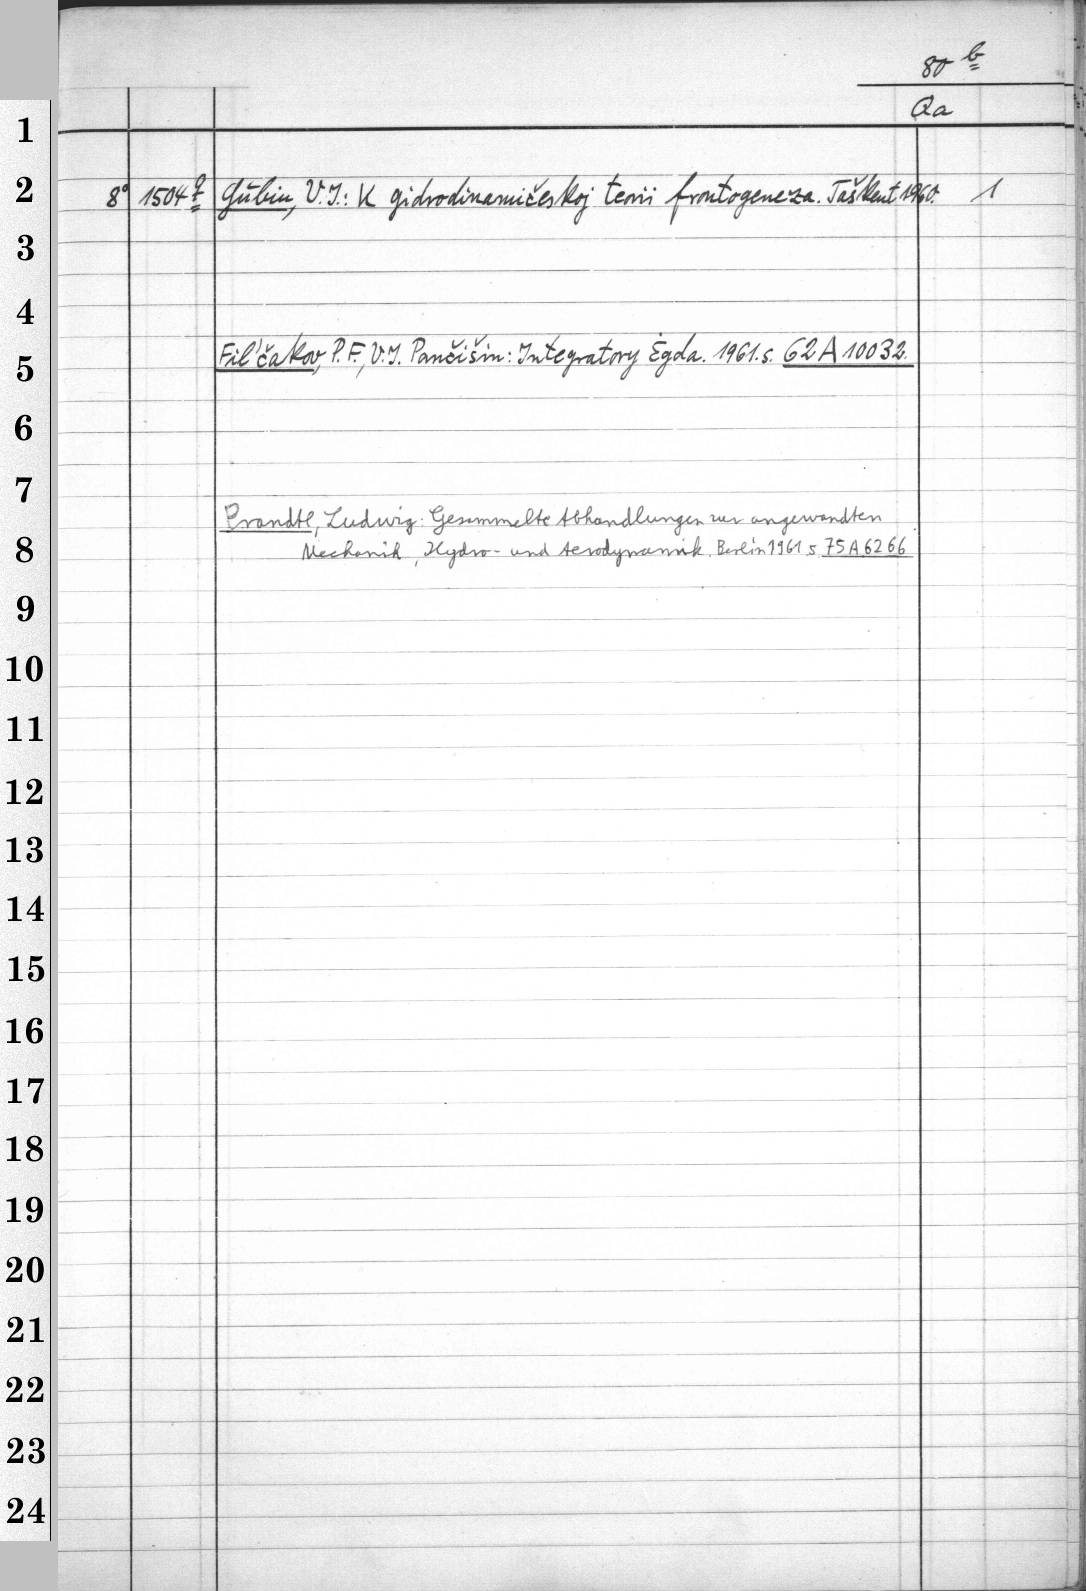 80 b
Qa
1
2 8° 1504 q Gubin, V.I.: K gidrodinamičeskoj teorii frontogeneza. Taškent 1960. 1
3
4
5 Fil'čakov, P.F., V.I. Pančišin: Integratory Ėgda. 1961. s. 62 A 10032.
6
7
Prandtl, Ludwig: Gesammelte Abhandlungen zur angewandten
8 Mechanik, Hydro- und Aerodynamik. Berlin 1961 s. 75 A 6266
9
10
11
12
13
14
15
16
17
18
19
20
21
22
23
24